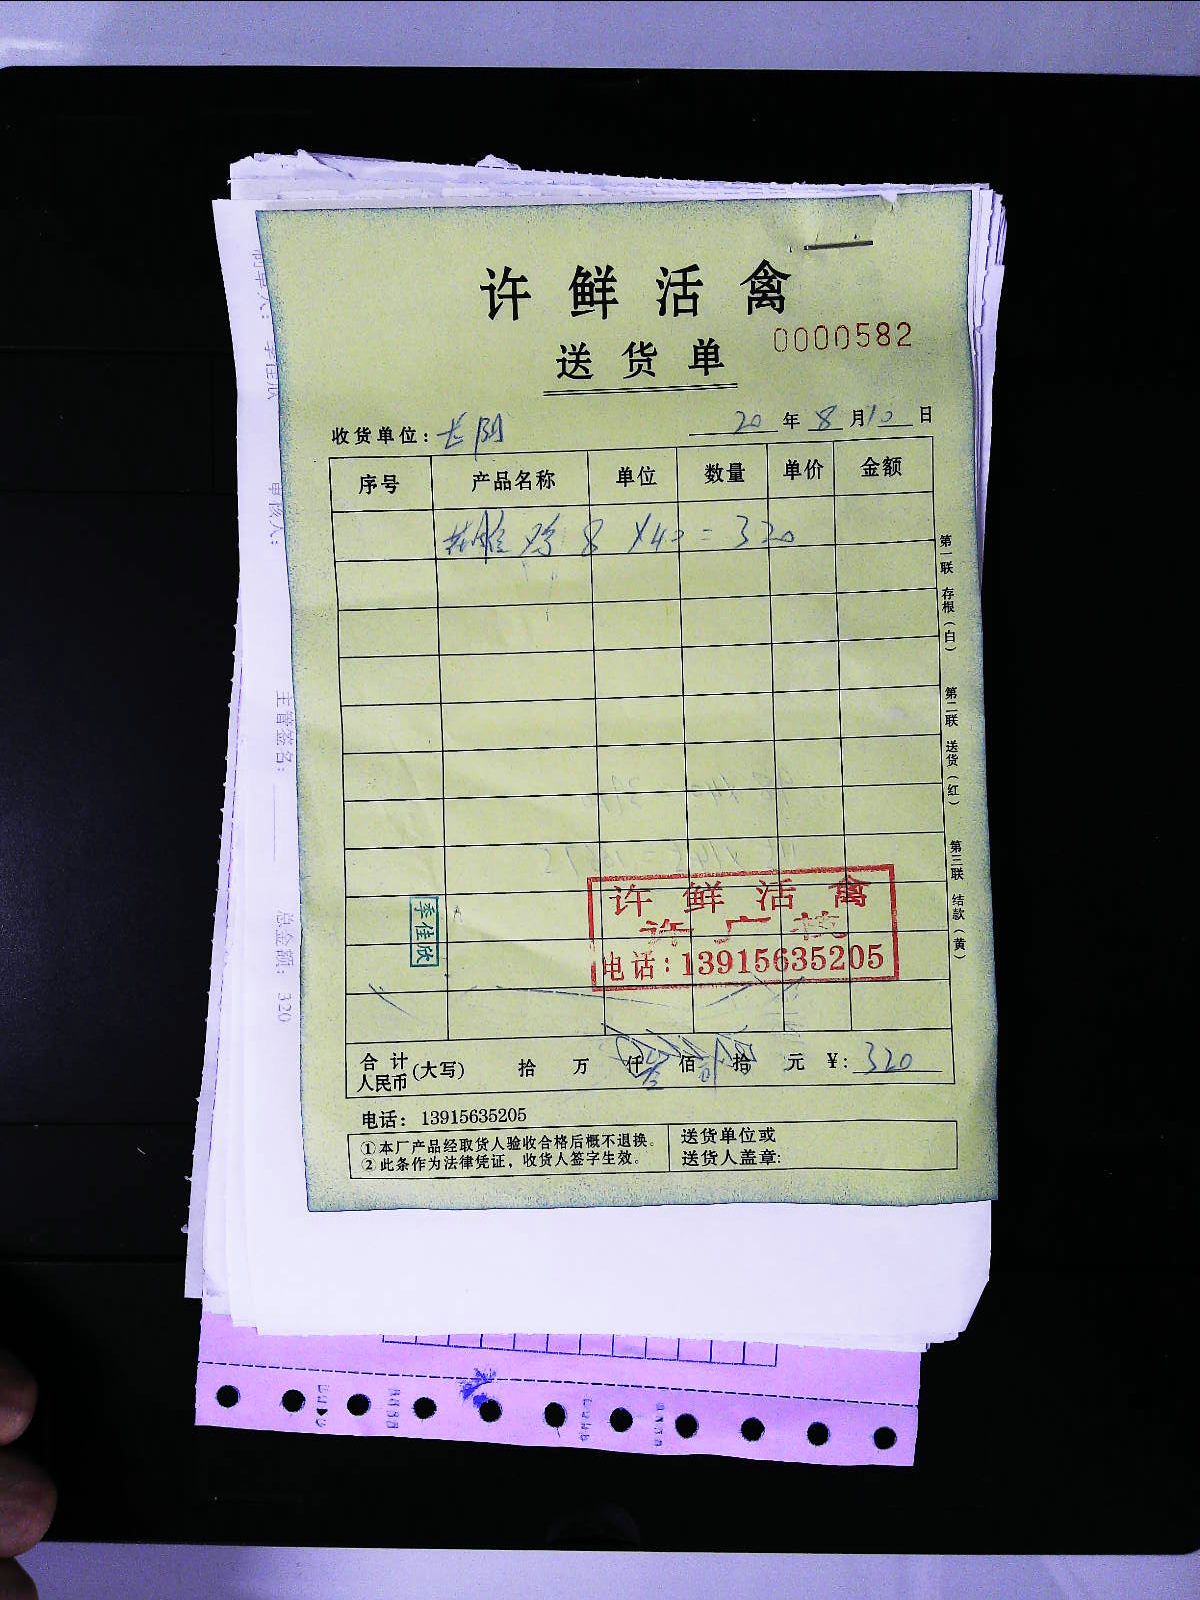 许鲜活禽
送货单
0000582
收货单位：长阴 20年8月10日
序号 产品名称 单位 数量 单价 金额
鸡 8 X40=320
第一联 存根（白）
第二联 送货（红）
第三联 结款（黄）
季佳欣
许鲜活禽
许广枝
电话：13915635205
合计人民币（大写） 拾 万 仟 佰 拾 元 ¥：320
电话：13915635205
①本厂产品经取货人验收合格后概不退换。
②此条作为法律凭证，收货人签字生效。
送货单位或
送货人盖章：
审核人：
主管签名：
总金额：320